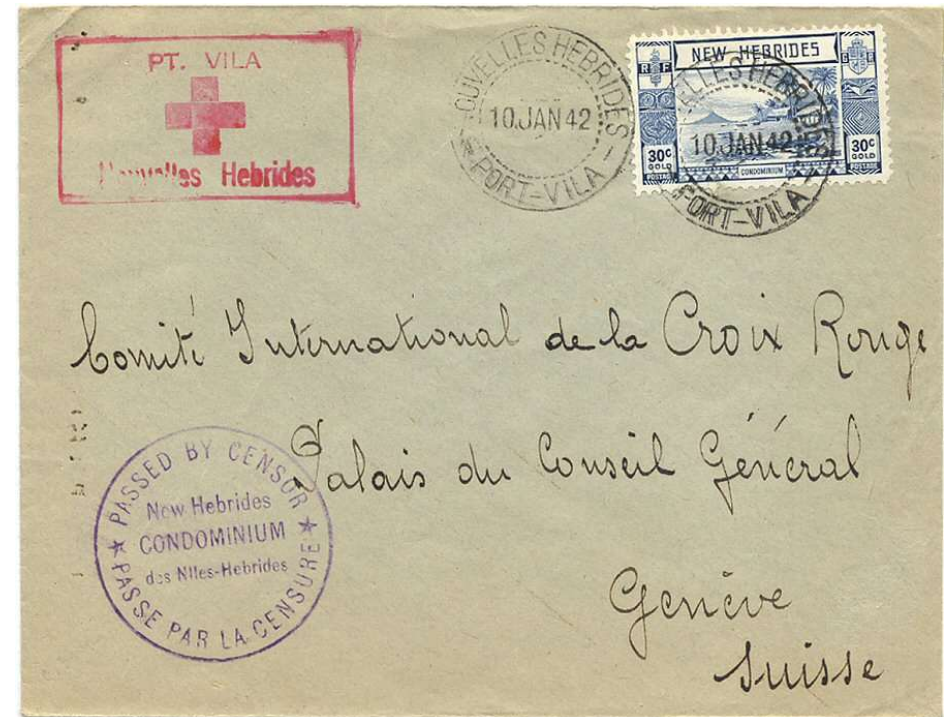 PT. VILA
Nouvelles Hebrides
NOUVELLES HEBRIDES
10 JAN 42
PORT-VILA
NEW HEBRIDES
RF
G E
30c GOLD POSTAGE
CONDOMINIUM
30c GOLD POSTAGE
10 JAN 42
PORT-VILA
Comité International de la Croix Rouge
Palais du Conseil Général
Genève
Suisse
PASSED BY CENSOR
New Hebrides
CONDOMINIUM
des Nlles-Hebrides
PASSE PAR LA CENSURE